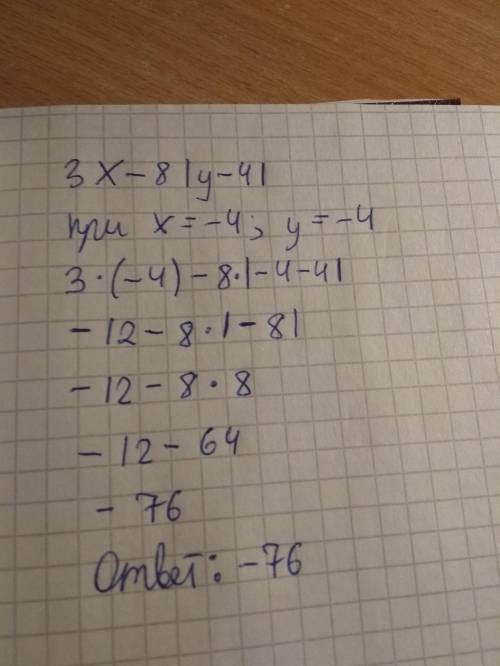 3x-8|y-4|
при x=-4; y=-4
3·(-4)-8·|-4-4|
-12-8·|-8|
-12-8·8
-12-64
-76
Ответ: -76